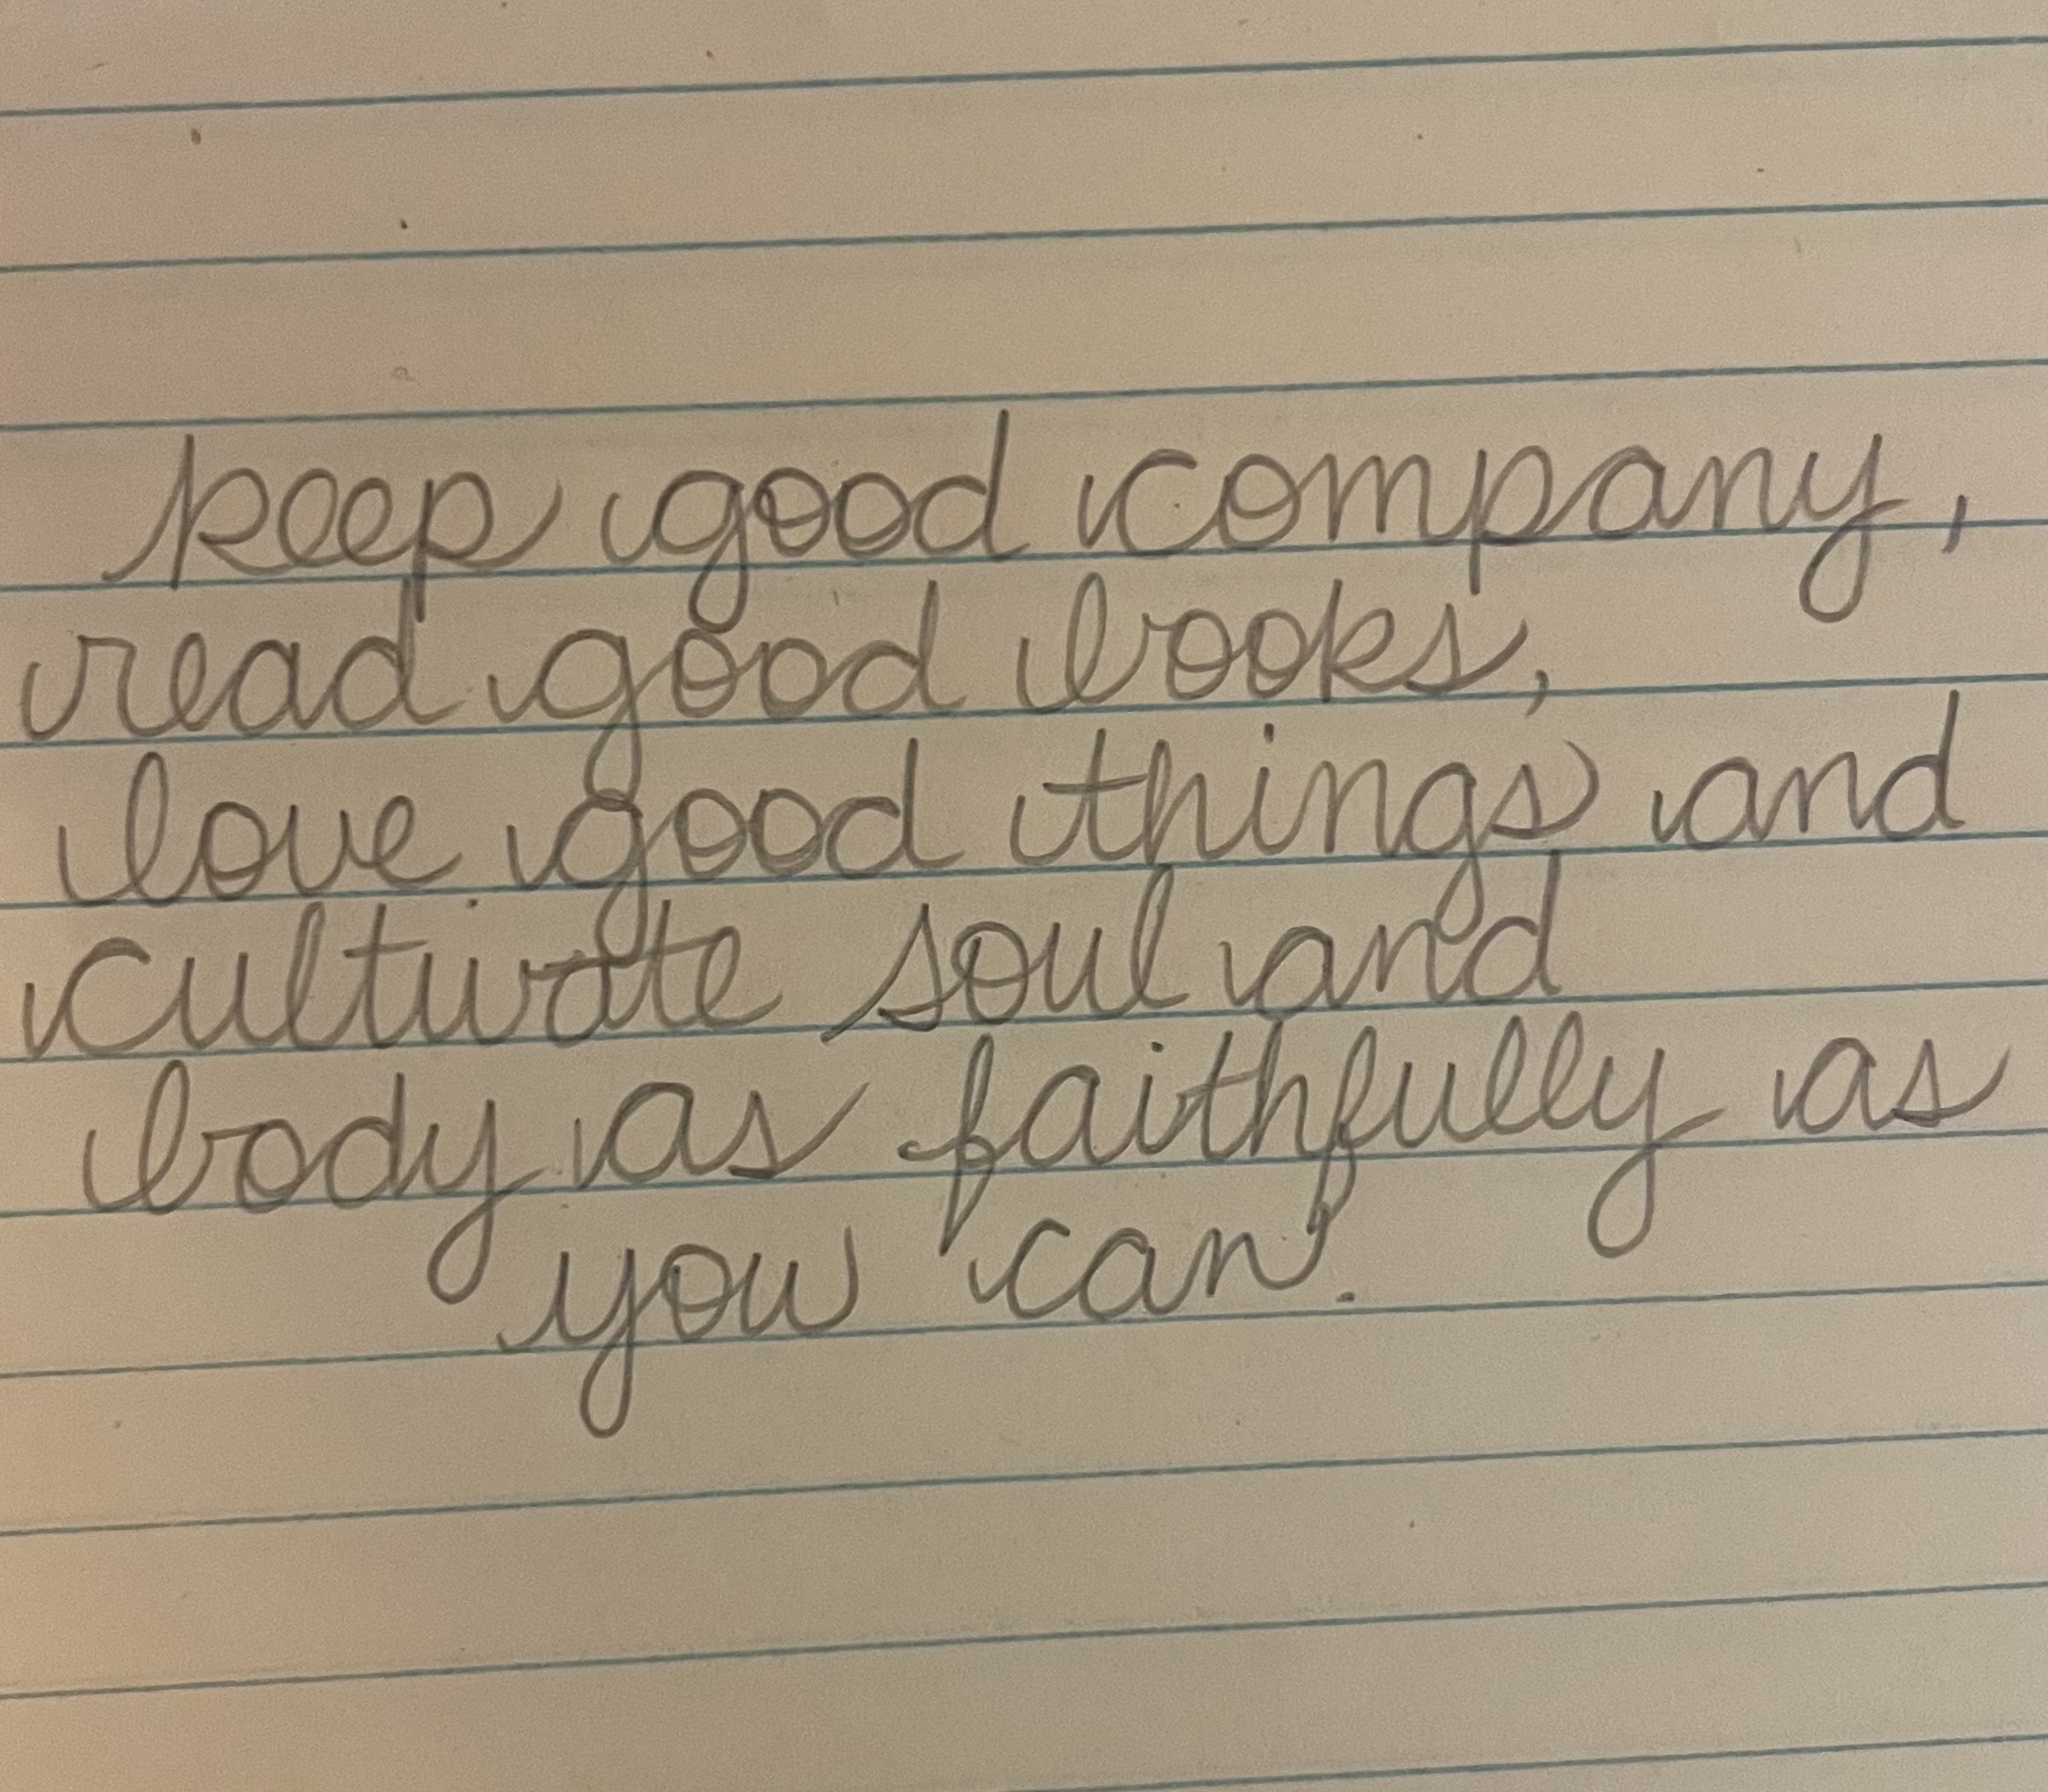 keep good company,
read good books,
love good things and
cultivate soul and
body as faithfully as
you can.